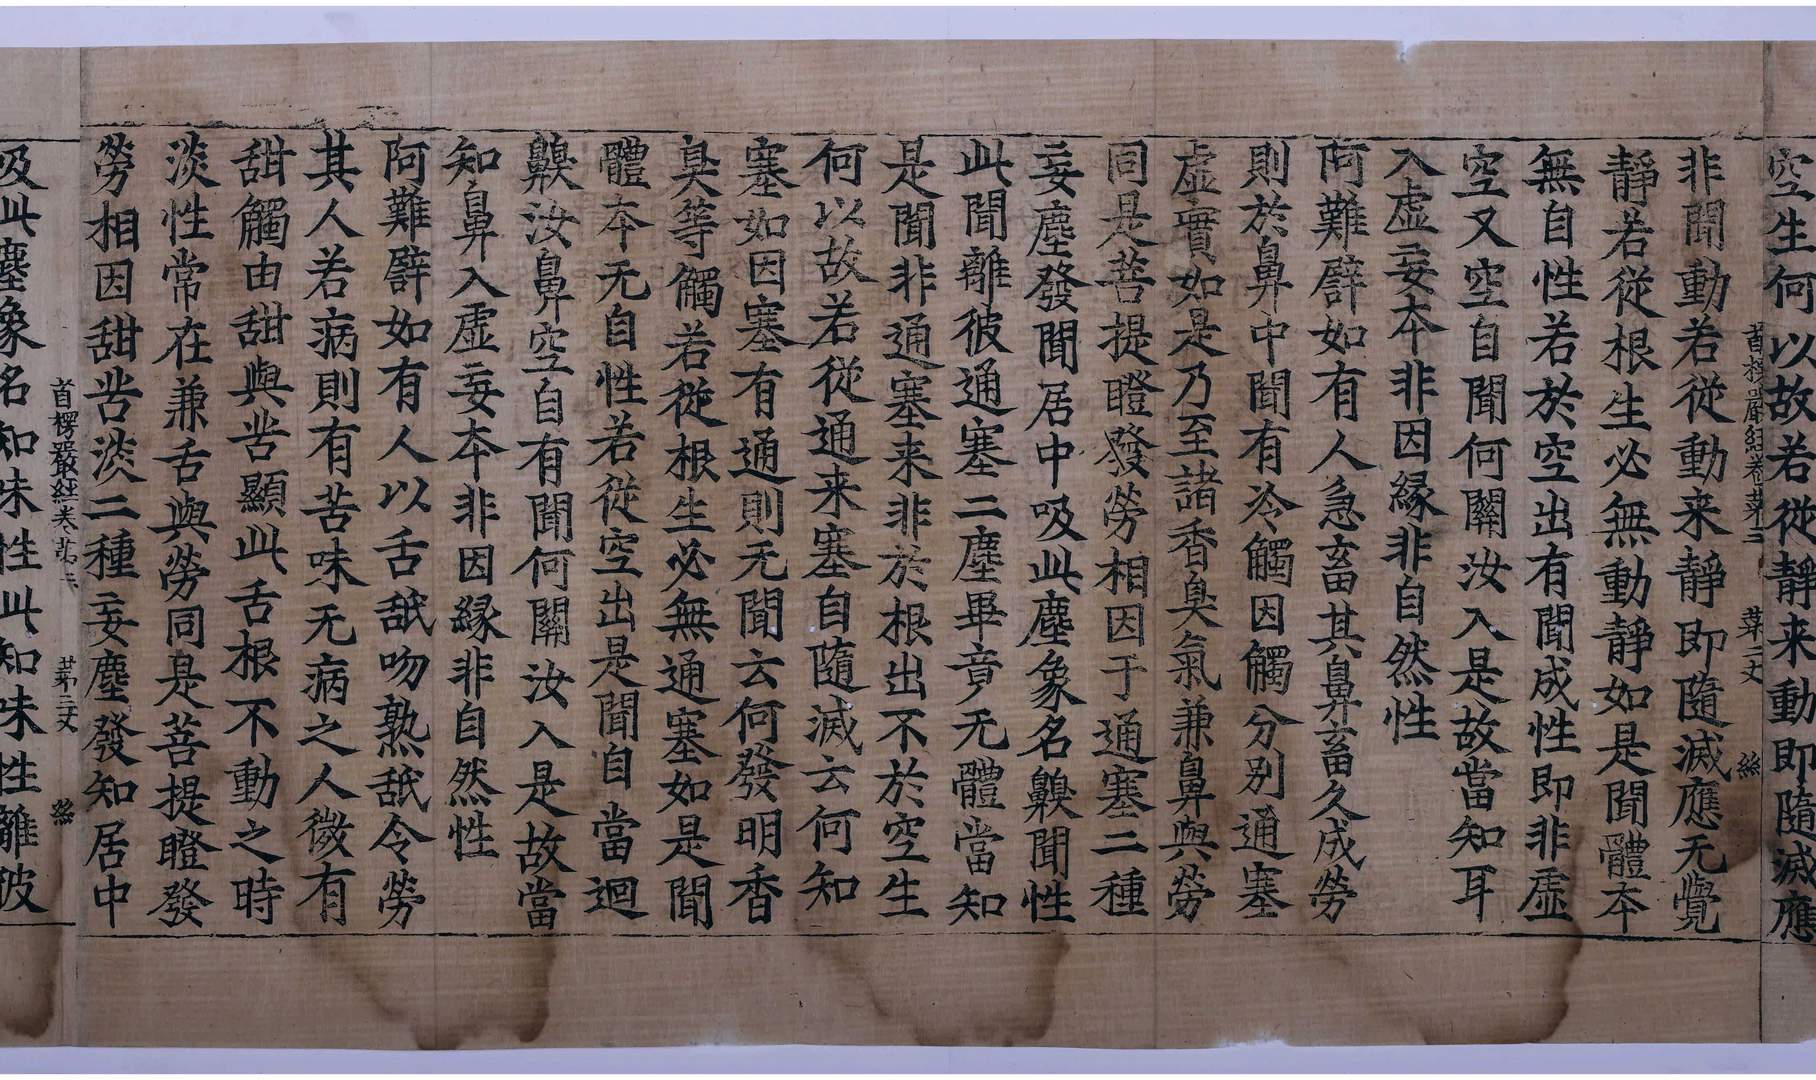 空生何以故若從靜来動即隨滅應
首楞嚴經卷苐三 苐二丈 絲
非聞動若從動来靜即隨滅應无覺
靜若從根生必無動靜如是聞體本
無自性若於空出有聞成性即非虛
空又空自聞何關汝入是故當知耳
入虛妄本非因緣非自然性
阿難譬如有人急畜其鼻畜久成勞
則於鼻中聞有冷觸因觸分別通塞
虛實如是乃至諸香臭氣兼鼻與勞
同是菩提瞪發勞相因于通塞二種
妄塵發聞居中吸此塵象名齅聞性
此聞離彼通塞二塵畢竟无體當知
是聞非通塞来非於根出不於空生
何以故若從通来塞自隨滅云何知
塞如因塞有通則无聞云何發明香
臭等觸若從根生必無通塞如是聞
體本无自性若從空出是聞自當迴
齅汝鼻空自有聞何關汝入是故當
知鼻入虛妄本非因緣非自然性
阿難譬如有人以舌舐吻熟舐令勞
其人若病則有苦味无病之人微有
甜觸由甜與苦顯此舌根不動之時
淡性常在兼舌與勞同是菩提瞪發
勞相因甜苦淡二種妄塵發知居中
首楞嚴經卷苐三 苐三丈 絲
吸此塵象名知味性此知味性離彼